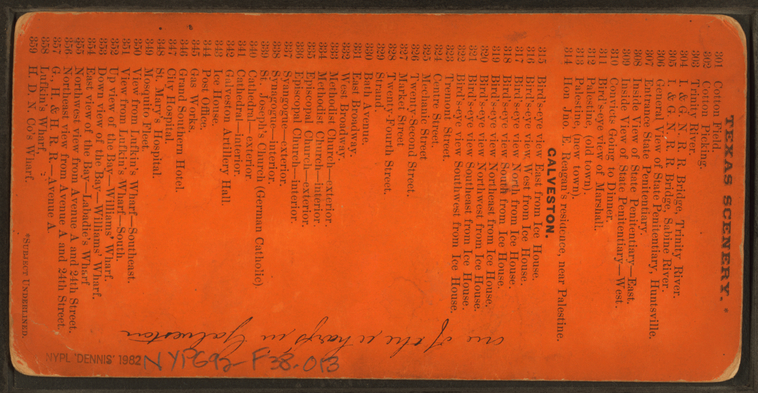 TEXAS SCENERY.*
301 Cotton Field.
302 Cotton Picking.
303 Trinity River.
304 I. & G. N. R. R. Bridge, Trinity River.
305 I. & G. N. R. R. Bridge, Sabine River.
306 General View of State Penitentiary, Huntsville.
307 Entrance State Penitentiary.
308 Inside View of State Penitentiary—East.
309 Inside View of State Penitentiary—West.
310 Convicts Going to Dinner.
311 Bird's-eye view of Marshall.
312 Palestine (old town).
313 Palestine (new town).
314 Hon. Jno. E. Reagan's residence, near Palestine.
GALVESTON.
315 Bird's-eye view East from Ice House.
316 Bird's-eye view West from Ice House.
317 Bird's-eye view North from Ice House.
318 Bird's-eye view South from Ice House.
319 Bird's-eye view Northeast from Ice House.
320 Bird's-eye view Northwest from Ice House.
321 Bird's-eye view Southeast from Ice House.
322 Bird's-eye view Southwest from Ice House.
323 Tremont Street.
324 Center Street.
325 Mechanic Street
326 Twenty-Second Street.
327 Market Street
328 Twenty-Fourth Street.
329 Strand.
330 Bath Avenue.
331 East Broadway.
332 West Broadway.
333 Methodist Church—exterior.
334 Methodist Church—interior.
335 Episcopal Church—exterior.
336 Episcopal Church—interior.
337 Synagogue—exterior.
338 Synagogue—interior.
339 St. Joseph's Church (German Catholic)
340 Cathedral—exterior.
341 Cathedral—interior.
342 Galveston Artillery Hall.
343 Ice House.
344 Post Office.
345 Gas Works.
346 Grand Southern Hotel.
347 City Hospital.
348 St. Mary's Hospital.
349 Mosquito Fleet.
350 View from Lufkin's Wharf—Southeast.
351 View from Lufkin's Wharf—South.
352 Up view of the Bay—Williams' Wharf.
353 Down view of the Bay—Williams' Wharf.
354 East view of the Bay—Labadie's Wharf.
355 Northwest view from Avenue A and 24th Street.
356 Northeast view from Avenue A and 24th Street.
357 G., H. & H. R. R.—Avenue A.
358 Lufkin's Wharf.
359 H. D. N. Co's Wharf.
*SUBJECT UNDERLINED.
of the wharfs in Galveston
NYPL 'DENNIS' 1982